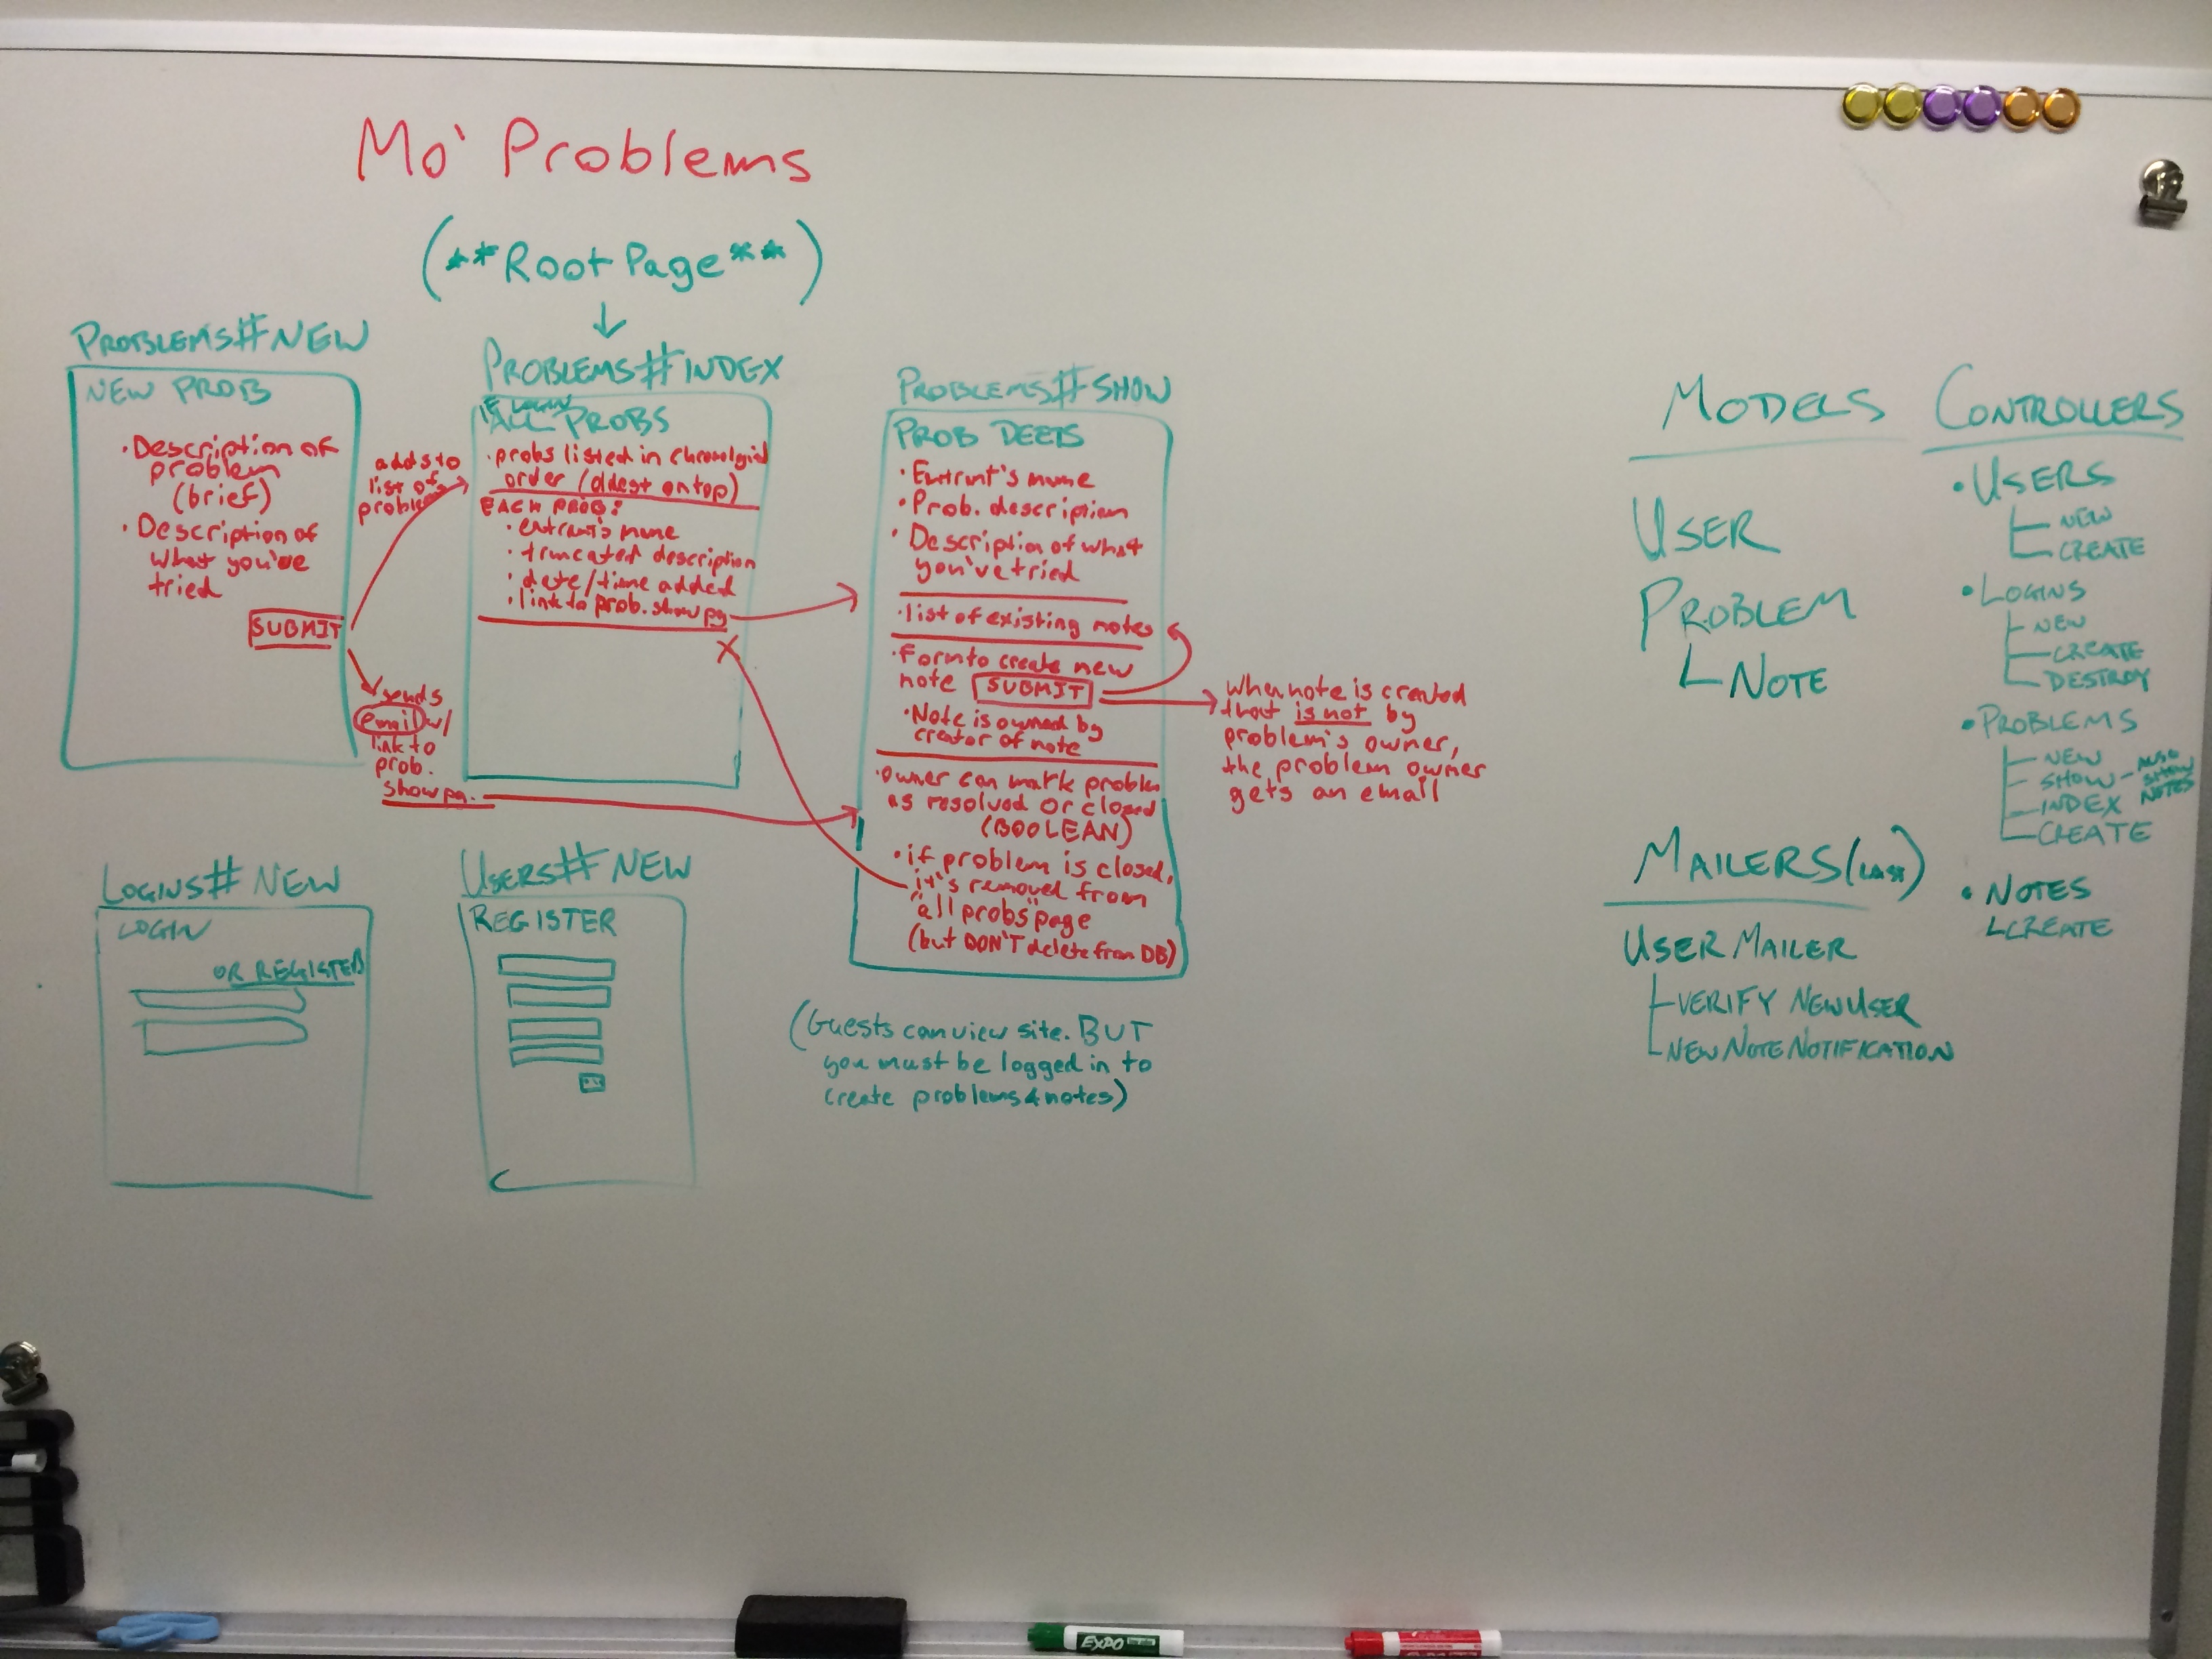 Mo' Problems
(**Root Page**)
PROBLEMS#NEW
NEW PROB
• Description of
problem
(brief)
• Description of
what you've
tried
SUBMIT
adds to
list of
problems
sends
email w/
link to
prob.
show pg.
PROBLEMS#INDEX
IF LOGIN
ALL PROBS
• probs listed in chronolgial
order (oldest on top)
EACH PROB:
• entrant's name
• truncated description
• date/time added
• link to prob. show pg
PROBLEMS#SHOW
PROB DEETS
• Entrant's name
• Prob. description
• Description of what
you've tried
• list of existing notes
• Form to create new
note SUBMIT
• Note is owned by
creator of note
• owner can mark problem
as resolved or closed
(BOOLEAN)
• if problem is closed,
it's removed from
"all probs" page
(but DON'T delete from DB)
When note is created
that is not by
problem's owner,
the problem owner
gets an email
LOGINS#NEW
LOGIN
OR REGISTER
USERS#NEW
REGISTER
(Guests can view site. BUT
you must be logged in to
create problems & notes)
MODELS
USER
PROBLEM
NOTE
MAILERS (LAST)
USER MAILER
VERIFY NEW USER
NEW NOTE NOTIFICATION
CONTROLLERS
• USERS
NEW
CREATE
• LOGINS
NEW
CREATE
DESTROY
• PROBLEMS
NEW
SHOW - ALSO
SHOW
NOTES
INDEX
CREATE
• NOTES
CREATE
EXPO